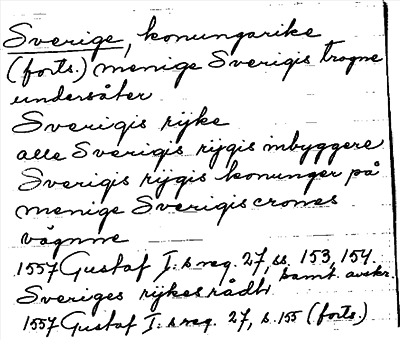 Sverige, konungarike
(forts.) menige Sverigis trogne
undersåter
Sverigis rijke
alle Sverigis rijgis inbyggere
Sverigis rijgis konunger på
menige Sverigis crones
vägnne
1557 Gustaf I:s reg. 27, ss. 153, 154
samt. avskr.
Sveriges rijkes rådh
1557 Gustaf I:s reg. 27, s. 155 (forts.)